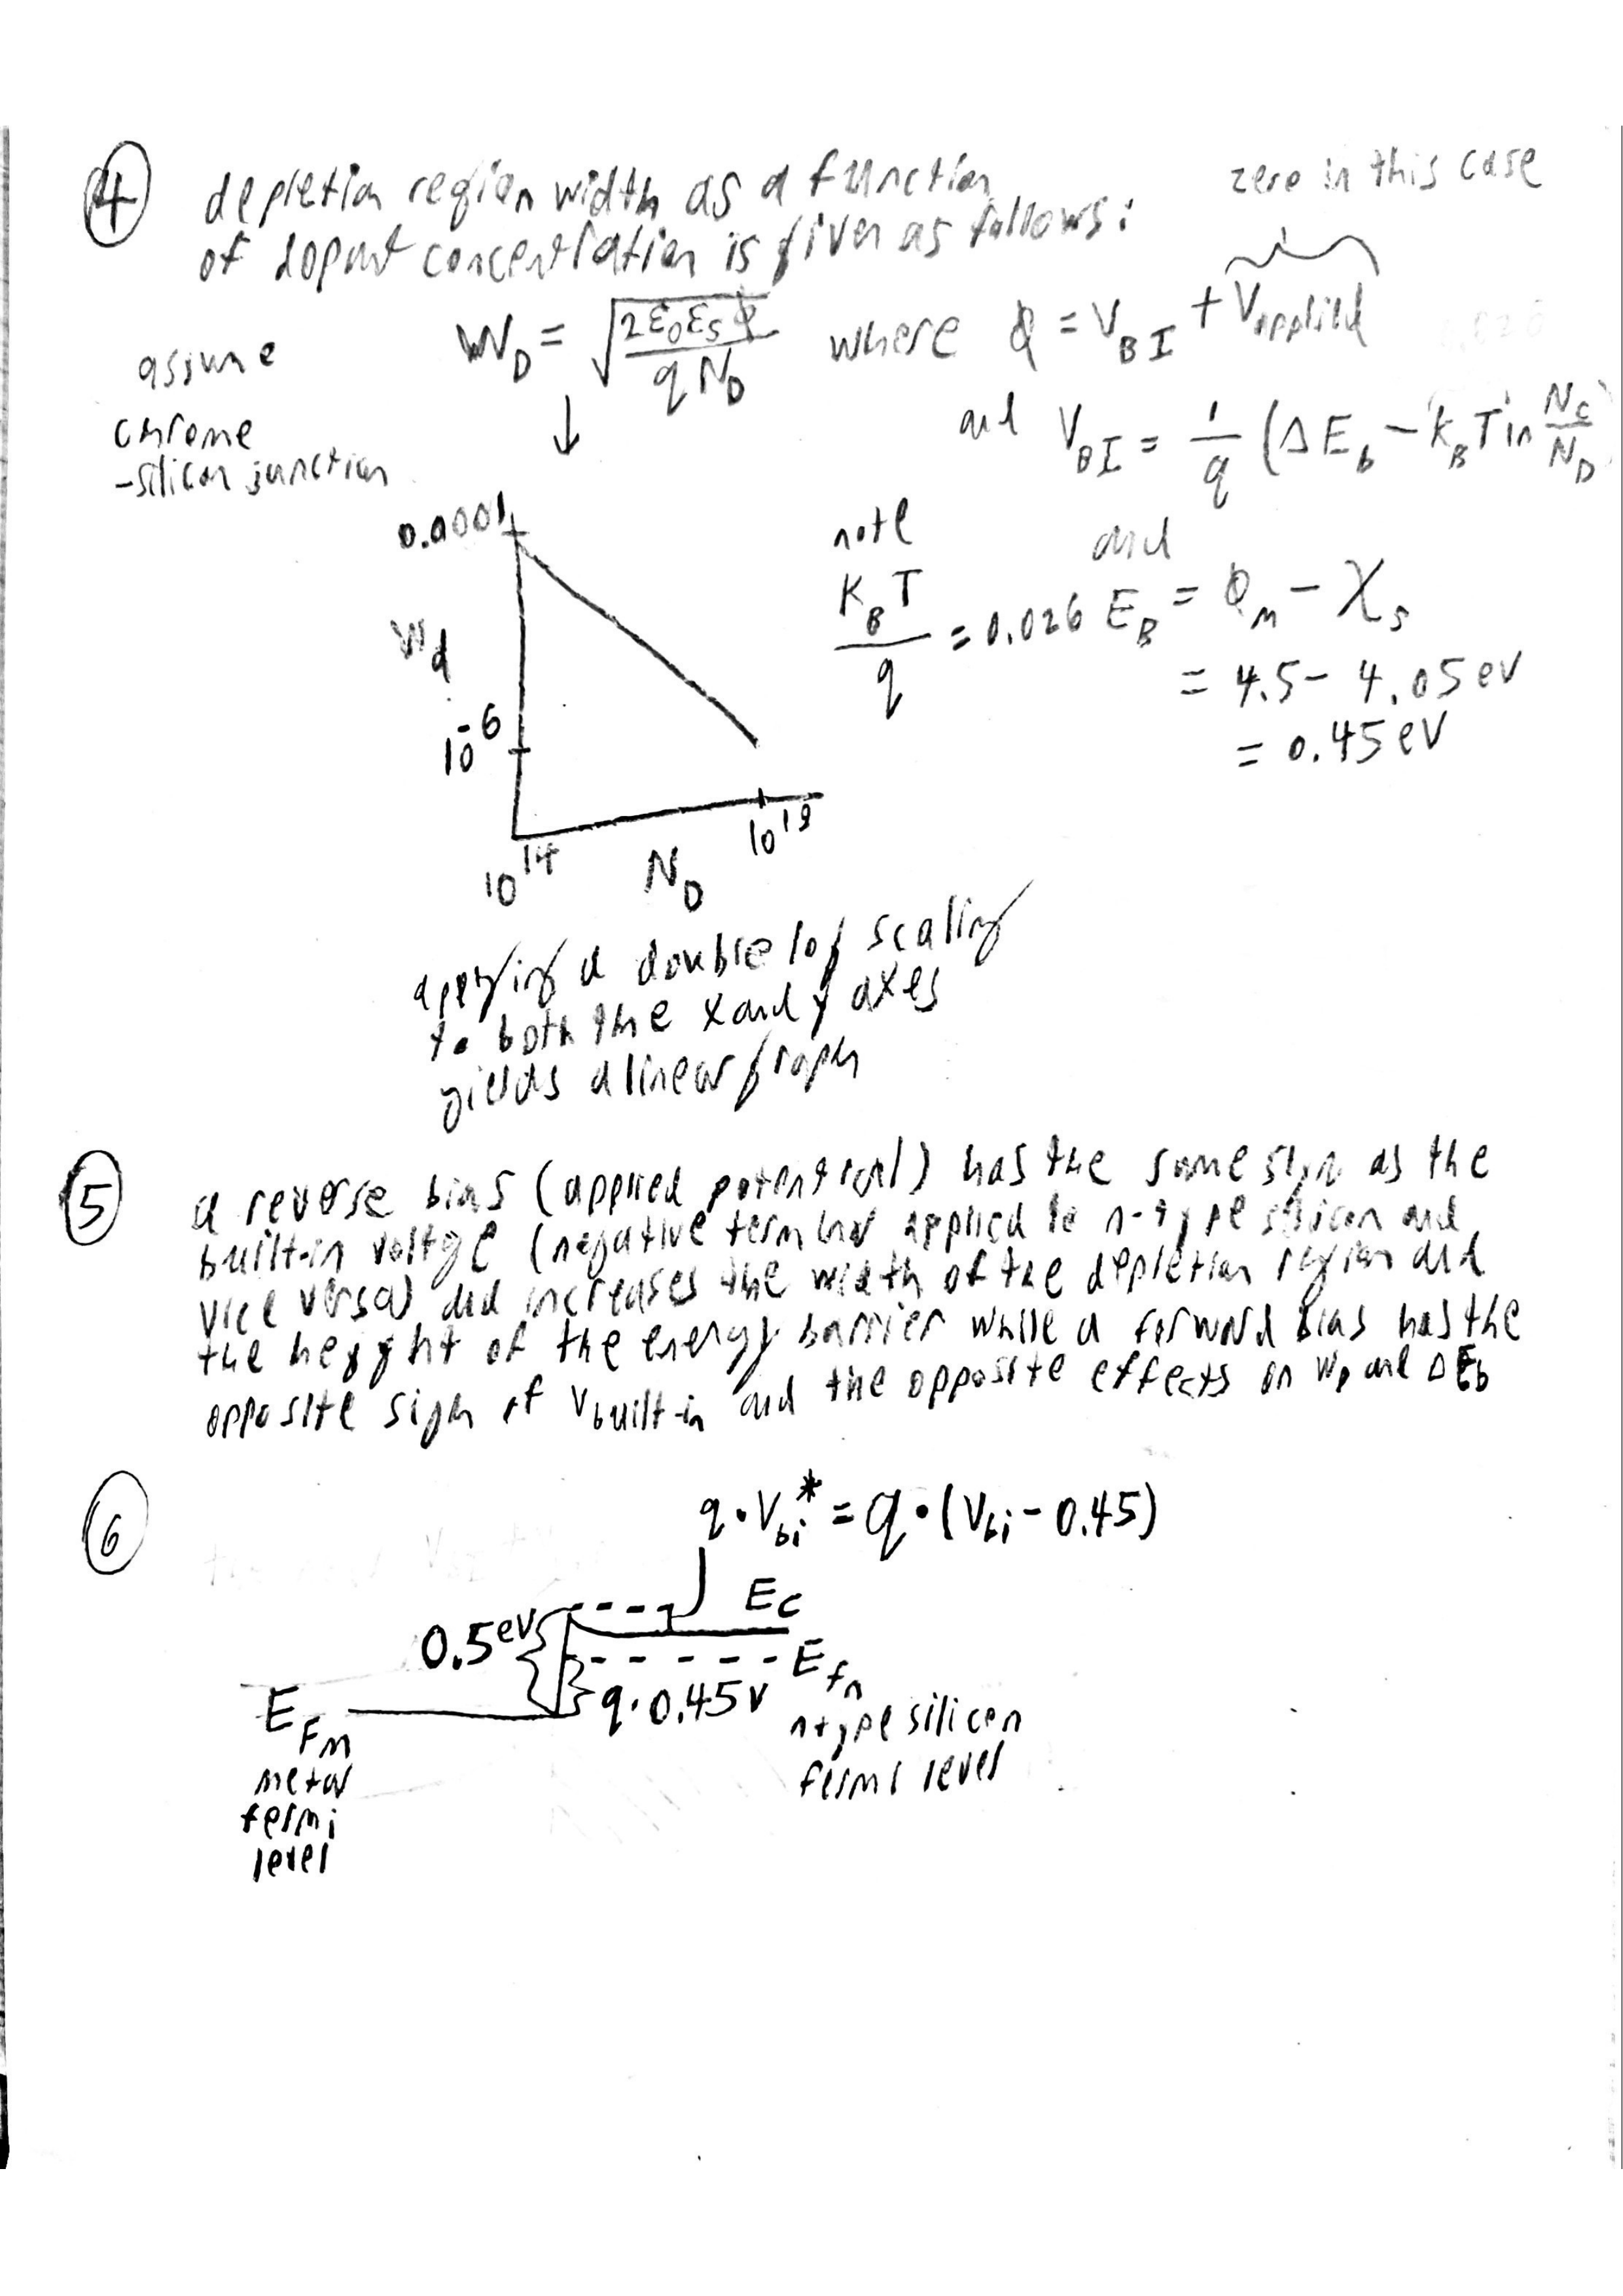 ④ depletion region width as a function
of dopant concentration is given as follows:
zero in this case
W_D = √(2ε₀ε_sΦ / qN_D) where Φ = V_BI + V_applied
assume
chrome
-silicon junction
and V_BI = 1/q (ΔE_b - k_BT ln N_c/N_D)
0.0001
W_d
10^-6
10^14
N_D
10^19
note
K_BT/q = 0.026
and
E_B = Φ_m - χ_s
= 4.5 - 4.05 eV
= 0.45 eV
applying a double log scaling
to both the x and y axes
yields a linear graph
⑤ a reverse bias (applied potential) has the same sign as the
built-in voltge (negative terminal applied to n-type silicon and
vice versa) and increases the width of the depletion region and
the heyght of the energy barrier while a forward bias has the
opposite sign of V built-in and the opposite effects on W_D and ΔE_b
⑥
q·V_bi* = q·(V_bi - 0.45)
E_c
0.5 eV
E_fn
q·0.45V
n type silicon
fermi level
E_Fm
metal
fermi
level